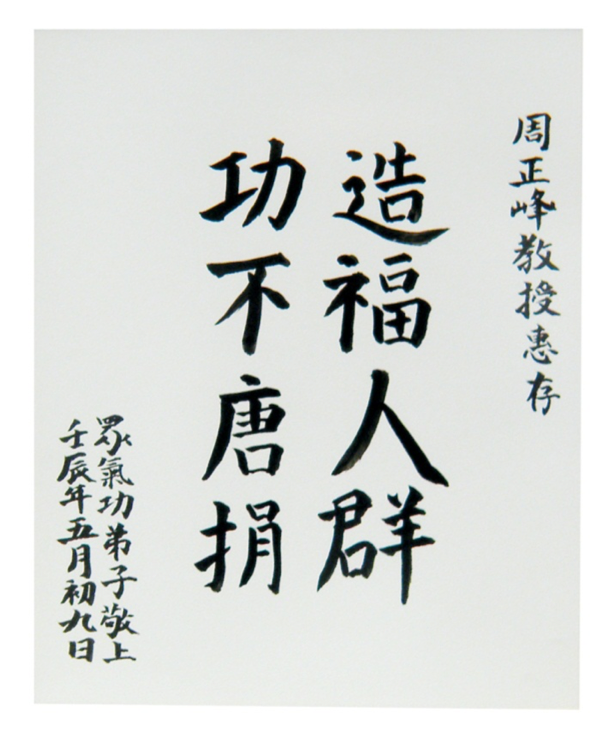 周正峰教授惠存
造福人群
功不唐捐
眾氣功弟子敬上
壬辰年五月初九日